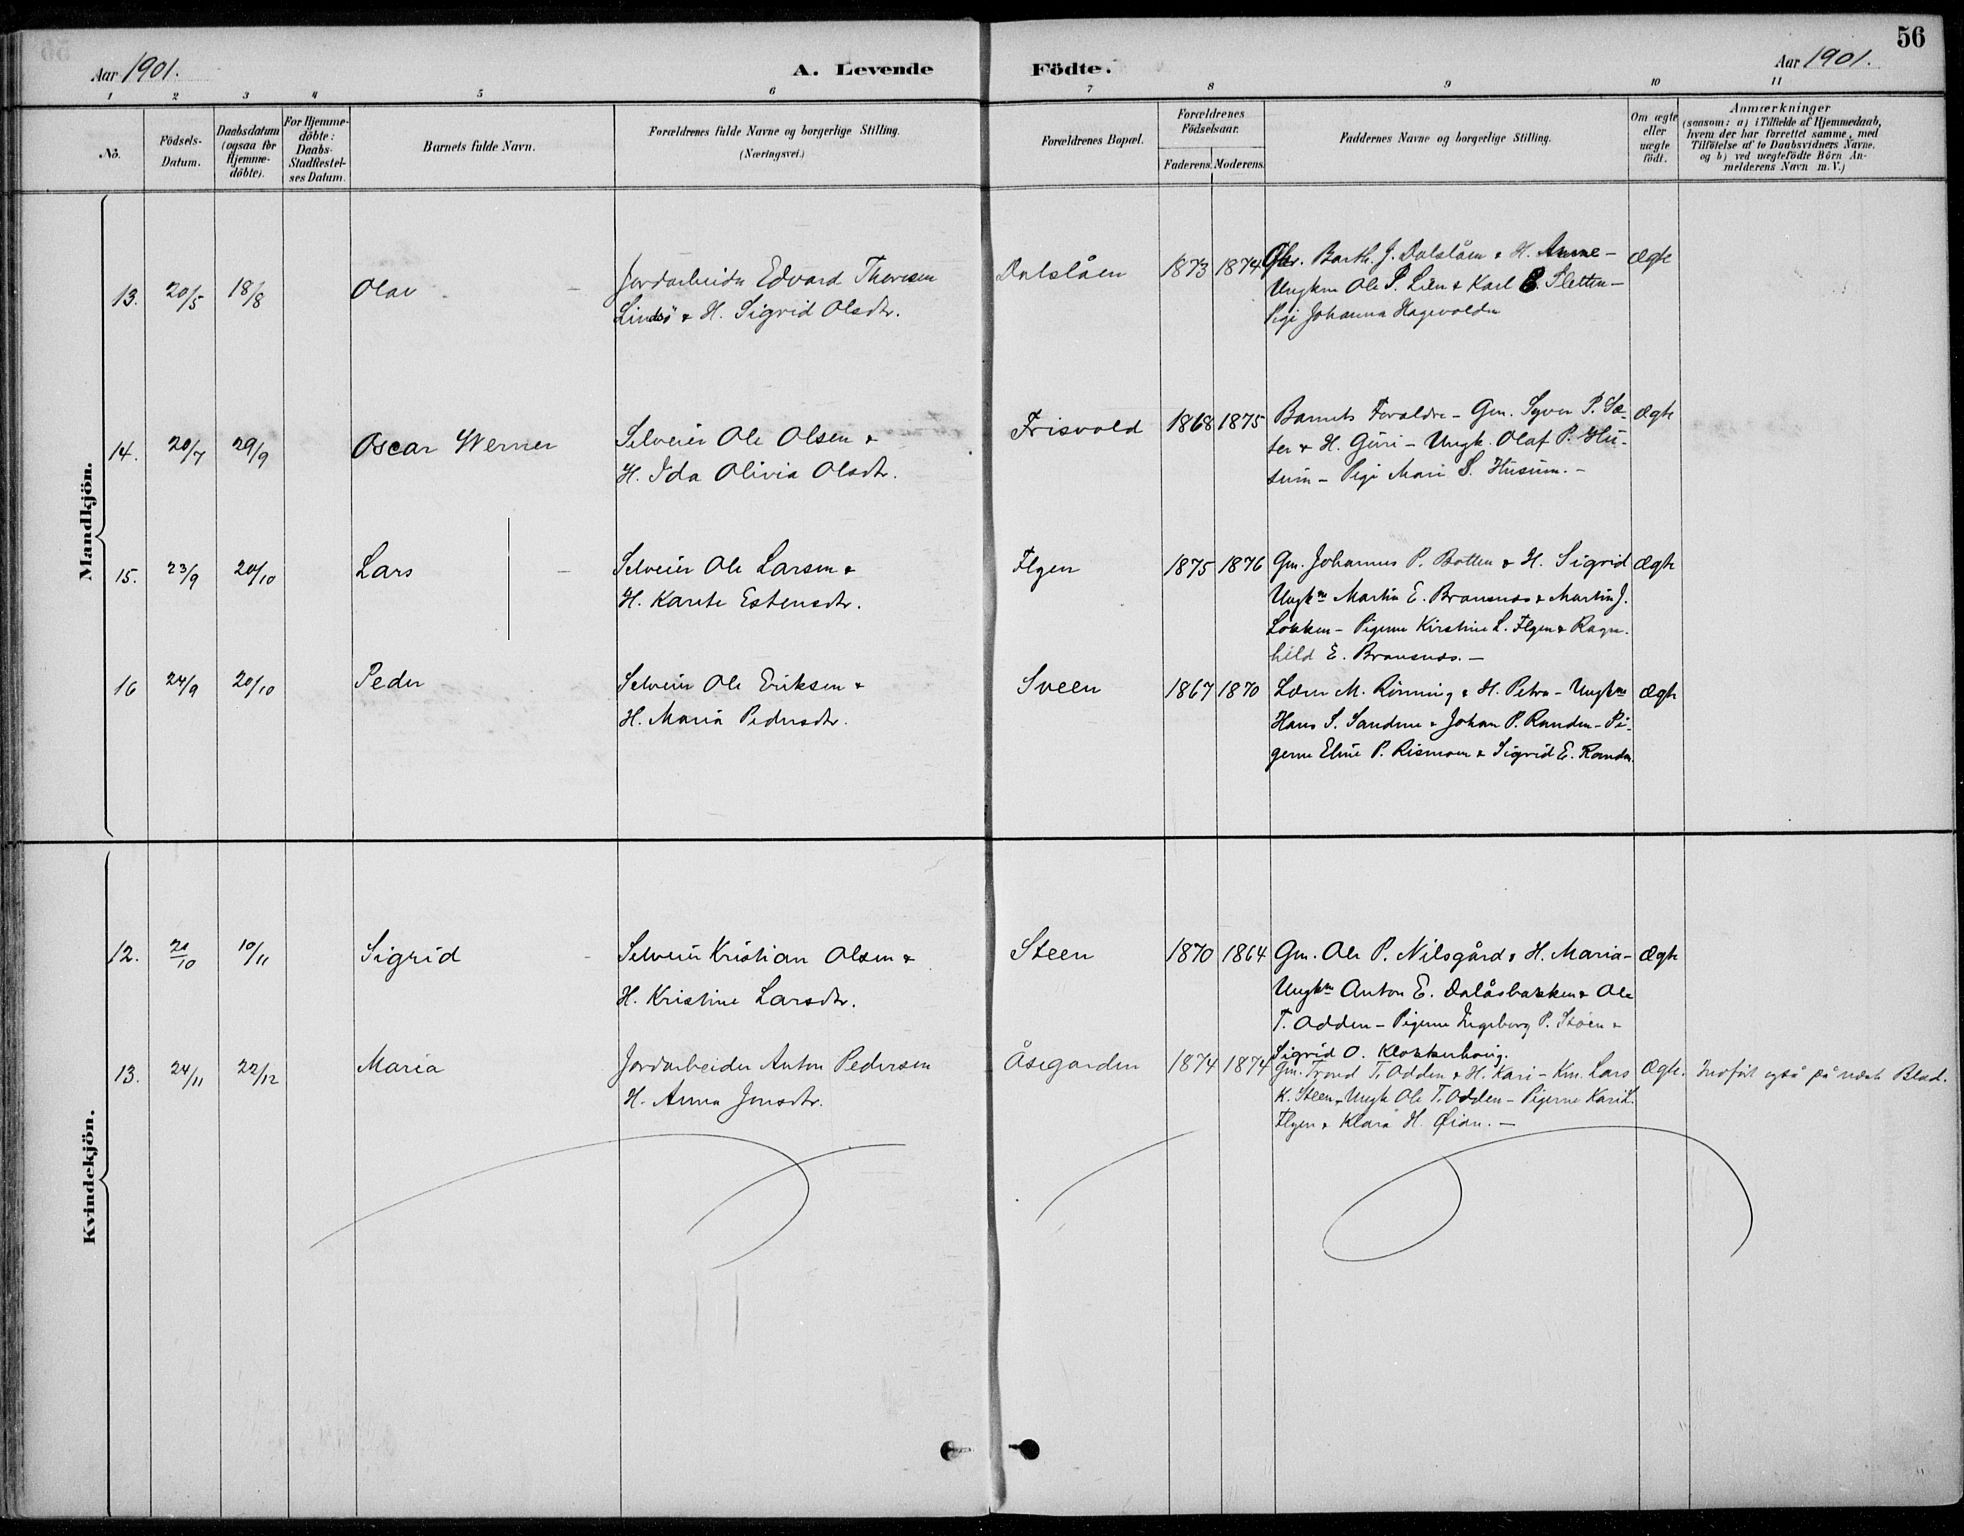 56
Aar 1901.
A. Levende Födte.
Aar 1901.
1 2 3 4 5 6 7 8 9 10 11
No.
Födsels-
Datum.
Daabsdatum
(ogsaa for
Hjemme-
döbte).
For Hjemme-
döbte:
Daabs-
Stadfæstel-
ses Datum.
Barnets fulde Navn.
Forældrenes fulde Navne og borgerlige Stilling.
(Næringsvei.)
Forældrenes Bopæl.
Forældrenes
Födselsaar.
Faderens. Moderens.
Faddernes Navne og borgerlige Stilling.
Om ægte
eller
uægte
födt.
Anmærkninger
(saasom: a) i Tilfælde af Hjemmedaab,
hvem der har forrettet samme, med
Tilföielse af to Daabsvidners Navne,
og b) ved uægtefödte Börn An-
melderens Navn m. V.)
Mandkjön.
13. 20/5 18/8 Olav
Jordarbeider Edvard Thoresen
Lindsö & H. Sigrid Olsdtr.
Dalslåen 1873 1874
Barth. J. Dalslåen & H. Anne –
Ungkm Ole P. Lien & Karl Sletten –
Pige Johanna Hagevolden
Ægte
14. 20/7 29/9 Oscar Werner
Selveier Ole Olsen &
H. Ida Olivia Olsdtr.
Frisvold 1868 1875
Barnets Forældre – Gm. Syver P. Sæ-
ter & H. Guri – Ungk. Olaf P. Hu-
sum – Pige Mari S. Husum. –
Ægte
15. 23/9 20/10 Lars
Selveier Ole Larsen &
H. Karete Estensdtr.
Flyen 1875 1876
Gm. Johannes P. Botten & H. Sigrid
Ungkm Martin E. Bransnes & Martin J.
Løkken – Pigerne Kirstine L. Flyen & Ragn-
hild E. Bransnes. –
Ægte
16 24/9 20/10 Peder
Selveier Ole Eriksen &
H. Maria Pedersdtr.
Sveen 1867 1870
Lærer M. Rönning & H. Petra – Ungkme
Hans S. Sandene & Johan P. Randen – Pi-
gerne Eline P. Rismoen & Sigrid E. Randen.
Ægte
Kvindekjön.
12. 20/10 10/11 Sigrid
Selveier Kristian Olsen &
H. Kristine Larsdtr.
Steen 1870 1864
Gm. Ole P. Nilsgård & H. Maria –
Ungkm Anton E. Dalåsbakken & Ole
T. Odden – Pigerne Ingeborg P. Støen &
Sigrid O. Klokkerhaug.
Ægte
13. 24/11 22/12 Maria
Jordarbeider Anton Pedersen
H. Anna Jonsdtr.
Åsegarden 1874 1874
Gm. Trond T. Odden & H. Kari – Km. Lars
K. Steen – Ungk Ole T. Odden – Pigerne Kari L.
Flyen & Klara H. Øian. –
Ægte.
Indfört også på næste Blad.